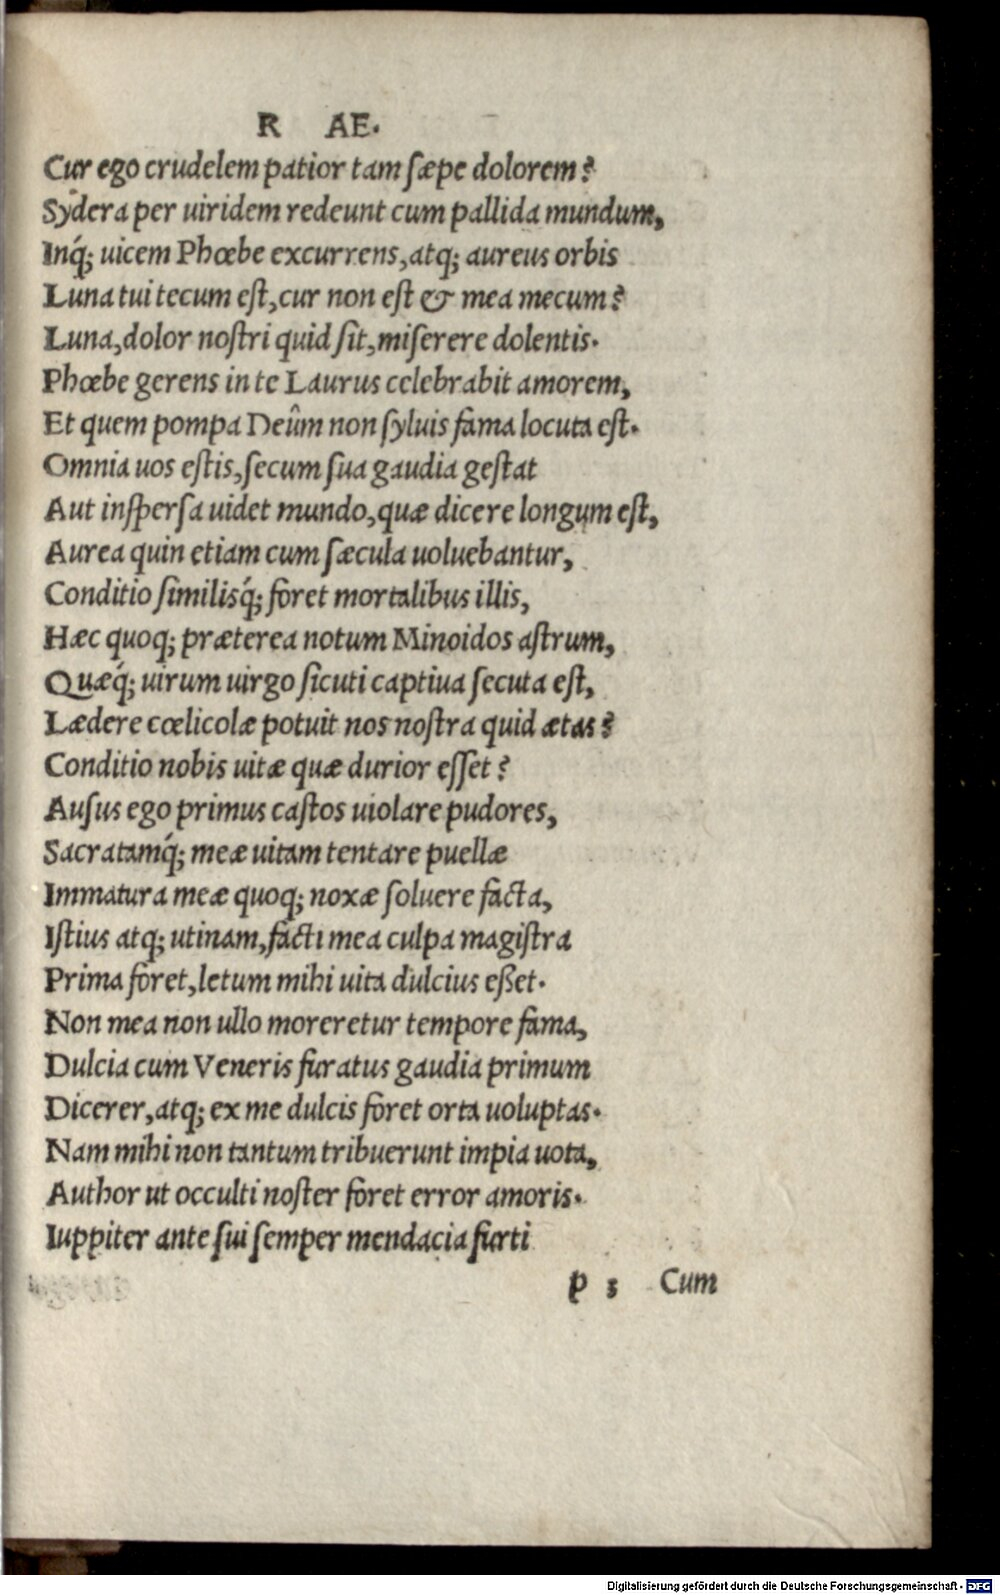 R AE.
Cur ego crudelem patior tam sæpe dolorem?
Sydera per uiridem redeunt cum pallida mundum,
Inq́; uicem Phœbe excurrens, atq; aureus orbis
Luna tui tecum est, cur non est & mea mecum?
Luna, dolor nostri quid sit, miserere dolentis.
Phœbe gerens in te Laurus celebrabit amorem,
Et quem pompa Deûm non syluis fama locuta est.
Omnia uos estis, secum sua gaudia gestat
Aut inspersa uidet mundo, quæ dicere longum est,
Aurea quin etiam cum sæcula uoluebantur,
Conditio similisq́; foret mortalibus illis,
Hæc quoq; præterea notum Minoidos astrum,
Quæq́; uirum uirgo sicuti captiua secuta est,
Lædere cœlicolæ potuit nos nostra quid ætas?
Conditio nobis uitæ quæ durior esset?
Ausus ego primus castos uiolare pudores,
Sacratamq́; meæ uitam tentare puellæ
Immatura meæ quoq; noxæ soluere facta,
Istius atq; utinam, facti mea culpa magistra
Prima foret, letum mihi uita dulcius eßet.
Non mea non ullo moreretur tempore fama,
Dulcia cum Veneris furatus gaudia primum
Dicerer, atq; ex me dulcis foret orta uoluptas.
Nam mihi non tantum tribuerunt impia uota,
Author ut occulti noster foret error amoris.
Iuppiter ante sui semper mendacia furti
p 3 Cum
Digitalisierung gefördert durch die Deutsche Forschungsgemeinschaft - DFG